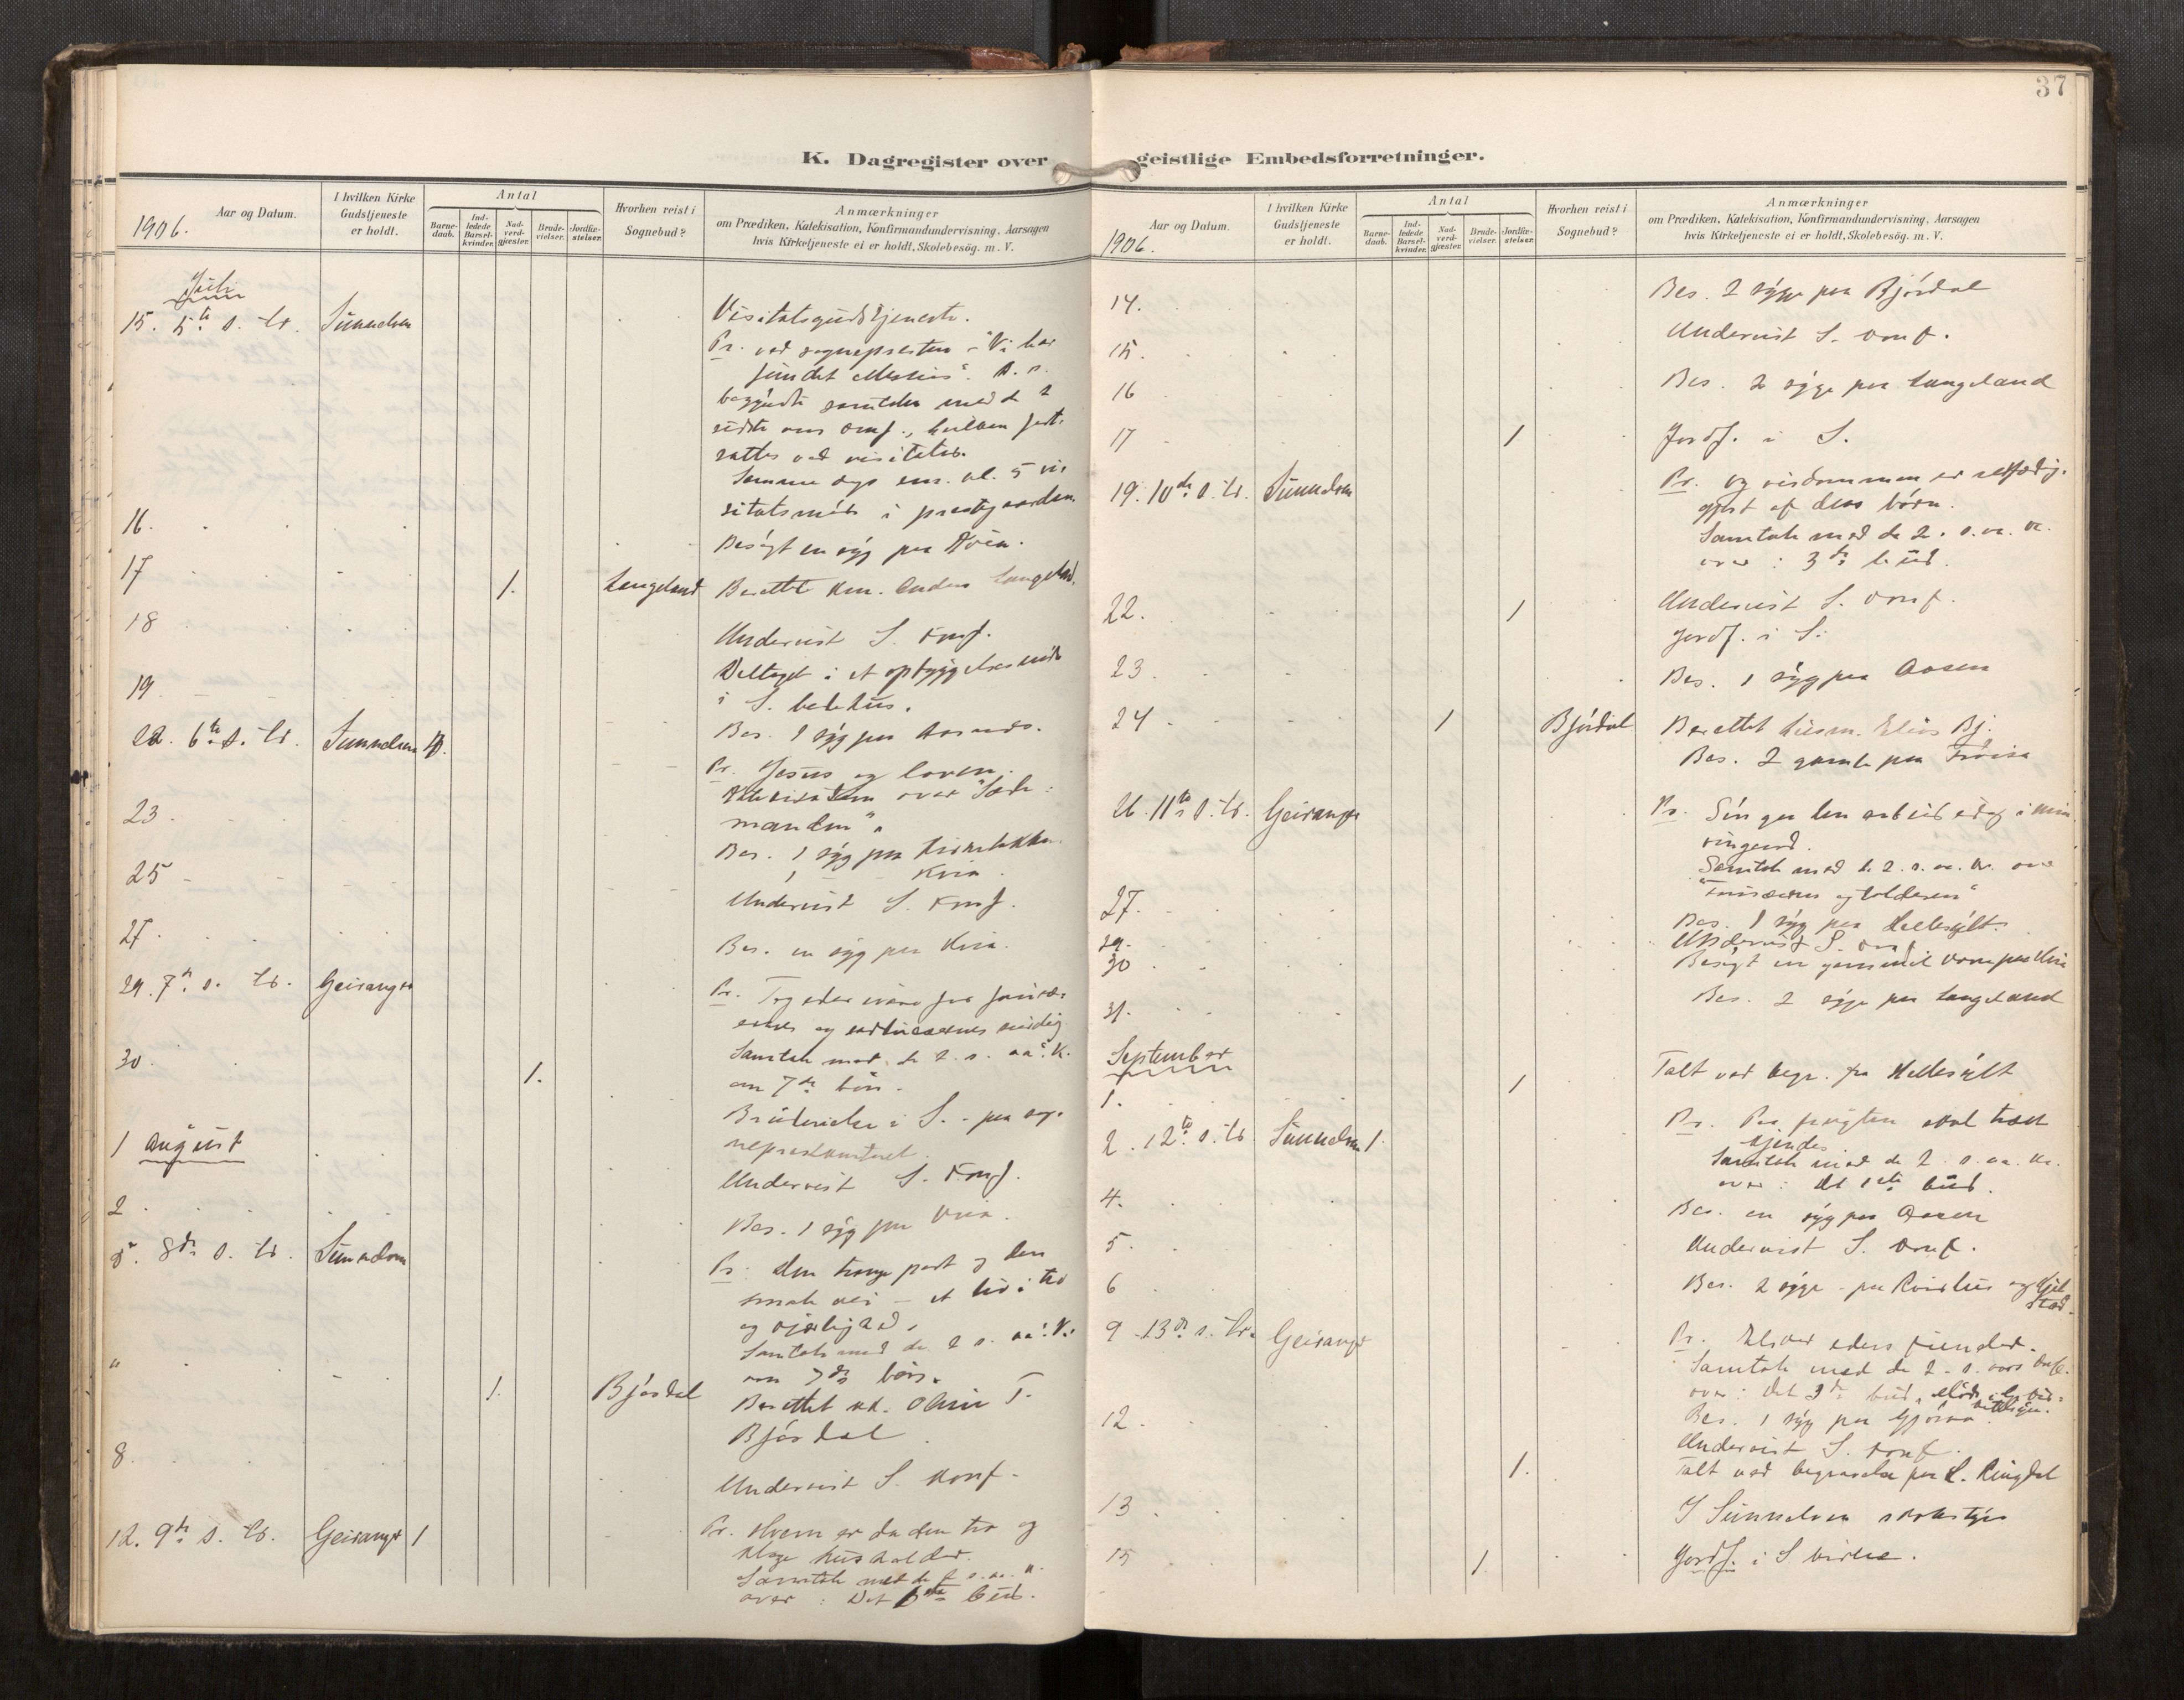 37
K. Dagregister over geistlige Embedsforretninger.
1906. Aar og Datum.
I hvilken Kirke Gudstjeneste er holdt.
Antal
Barne-daab.
Ind-ledede Barsel-kvinder.
Nad-verd-gjester.
Brude-vielser.
Jordfæ-stelser.
Hvorhen reist i Sognebud?
Anmærkninger
om Prædiken, Katekisation, Konfirmandundervisning, Aarsagen
hvis Kirketjeneste ei er holdt, Skolebesög. m. V.
Juli
15. 5te s. tr. Sunnelven Visitatsgudstjeneste.
Pr. ved sognepresten - "Vi har
fundet Messias". S. s.
begyndte samtalen med de 2
sidste aars konf., hvilken fort-
sattes ved
Samme dags em. kl. 5 vi-
sitatsmøde i prestegaarden.
16. Besøgt en syg paa
17 1. Langeland Berettet Anders Langeland.
18 Undervist S. konf.
Deltaget i et opbyggelsesmøde
i S. bedehus.
19 Bes. 1 syg paa
22. 6te s. tr. Sunnelven Pr. Jesus og loven.
over "Sæde-
manden".
23. Bes. 1 syg paa
1 - - Kvia.
25 Undervist S. konf.
27. Bes. en syg paa Kvia.
29. 7de s. tr. Geiranger Pr. Tag eder ivare for farisæ-
ernes og saddukæernes surdeig.
Samtale med de 2 s. aa. k.
om 7de bøn.
30 1. Brudevielse i S. - paa sog-
neprestkontoret.
1 August Undervist S. konf.
2. Bes. 1 syg paa Kvia.
5. 8de s. tr. Sunnelven Pr. Den trange port og den
smale vei - et liv i tro
og kjærlighed.
Samtale med de 2 s. aa. k.
om 7de bøn.
" 1. Bjørdal Berettet
Bjørdal.
8. Undervist S. konf.
12. 9de s. tr. Geiranger 1 Pr. Hvem er da den tro og
kloge husholder.
Samtale med de 2 s. aa. k.
over: Det bud.
1906. Aar og Datum.
I hvilken Kirke Gudstjeneste er holdt.
Antal
Barne-daab.
Ind-ledede Barsel-kvinder.
Nad-verd-gjester.
Brude-vielser.
Jordfæ-stelser.
Hvorhen reist i Sognebud?
Anmærkninger
om Prædiken, Katekisation, Konfirmandundervisning, Aarsagen
hvis Kirketjeneste ei er holdt, Skolebesög. m. V.
14. Bes. 2 syge paa Bjørdal
15. Undervist S. konf.
16 Bes. 2 syge paa Langeland
17 1 Jordf. i S.
19. 10de s. tr. Sunnelven Pr. Og visdommen er retfærdig-
gjort af dens børn.
Samtale med de 2 s. aa. k.
over: 3de bud.
22. 1 Undervist S. konf.
Jordf. i S.
23. Bes. 1 syg paa Aasen
24. 1 Bjørdal Berettet husm. Elias Bj.
Bes. 2 gamle paa
26. 11te s. tr. Geiranger Pr. Søn gaa hen arbeid idag i min
vingaard.
Samtale med de 2 s. aa. k. over
"Farisæeren og tolderen"
27. Bes. 1 syg paa Hellesylt.
29. Undervist S. konf.
30 Besøgt en gammel kone paa Kvia
31. Bes. 2 syge paa Langeland
September
1. 1 Talt ved begr. fra Hellesylt
2. 12te s. tr. Sunnelven 1. Pr. Paa frugten skal træet
kjendes.
Samtale med de 2 s. aa. k.
over: det bud.
4. Bes. en syg paa Aasen
5. Undervist S. konf.
6 Bes. 2 syge - paa og
9. 13de s. tr. Geiranger Pr. Elsker eders fiender.
Samtale med de 2 s. aars konf.
over: det 3de bud,
12. Bes. 1 syg paa
Undervist S. konf.
1. Talt ved begravelse paa L. Ringdal
13. I Sunnelven skolestyre
15 1. Jordf. i S kirke.